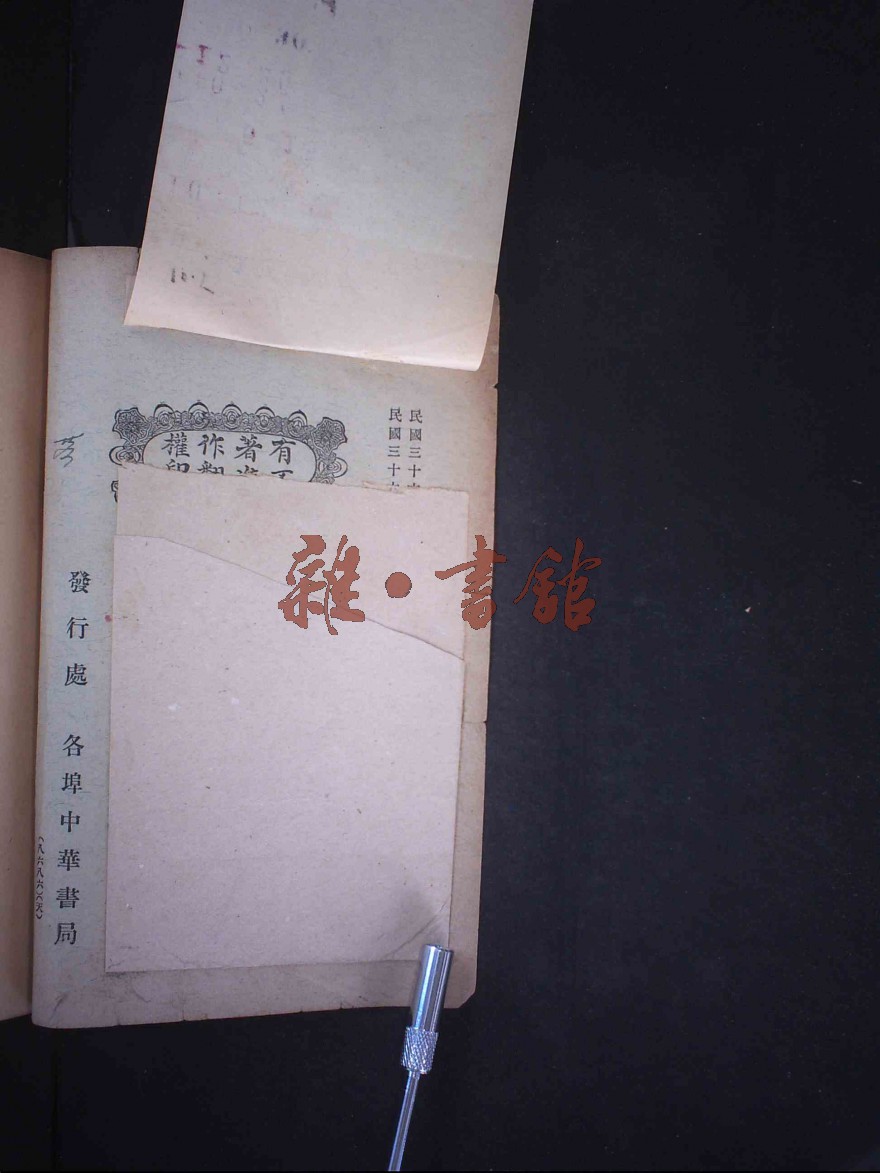 民國三十
民國三十
有
著
作翻
權印
發行處 各埠中華書局
(八六八六)(天)
雜·書館